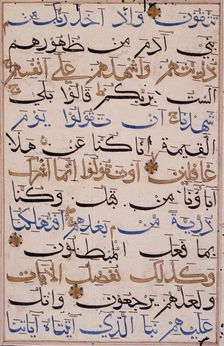 تتقون واذ اخذ ربك من
بني آدم من ظهورهم
ذريتهم واشهدهم على انفسهم
الست بربكم قالوا بلى
شهدنا ان تقولوا يوم
القيمة انا كنا عن هذا
غافلين او تقولوا انما اشرك
اباؤنا من قبل وكنا
ذرية من بعدهم افتهلكنا
بما فعل المبطلون
وكذلك نفصل الايات
ولعلهم يرجعون واتل
عليهم نبا الذي اتيناه اياتنا